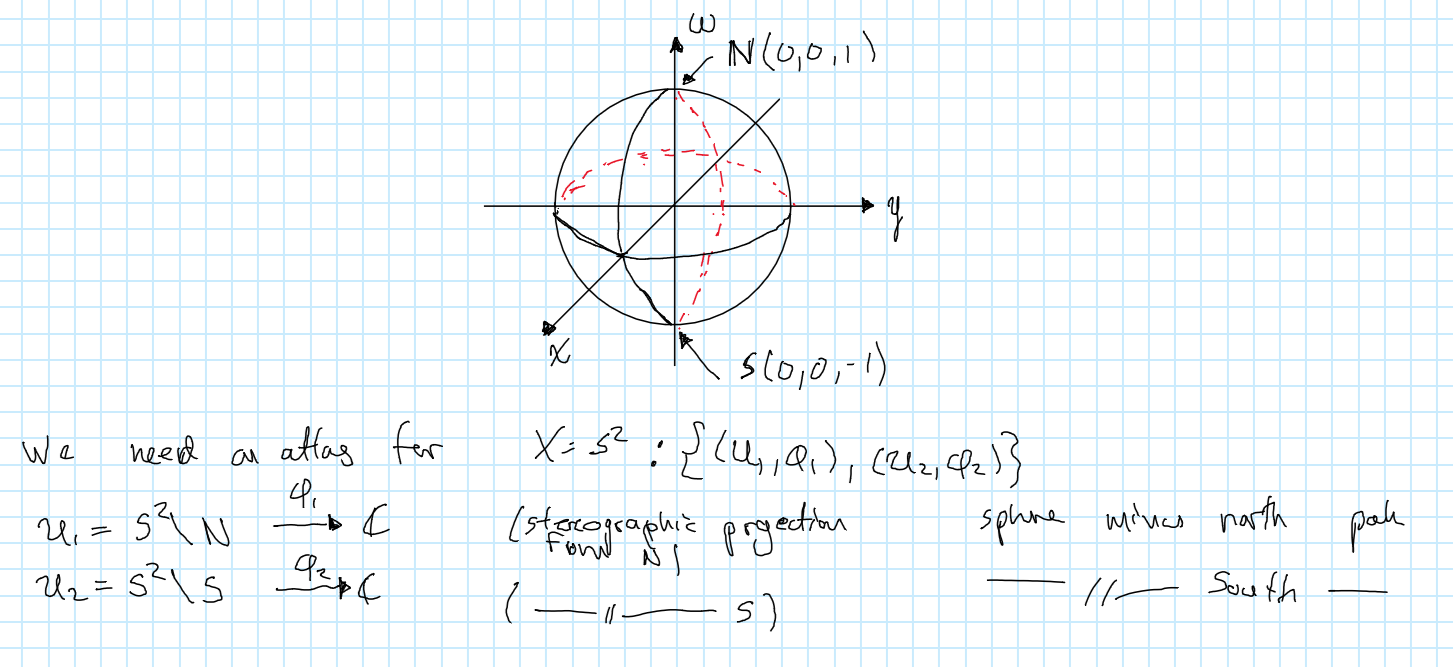 ω
N(0,0,1)
y
x
S(0,0,-1)
We need an atlas for X = S² : {(U₁,φ₁), (U₂,φ₂)}
U₁ = S² \ N →φ₁ ℂ (stereographic projection from N) sphere minus north pole
U₂ = S² \ S →φ₂ ℂ ( —— // —— S) —— // —— South ——